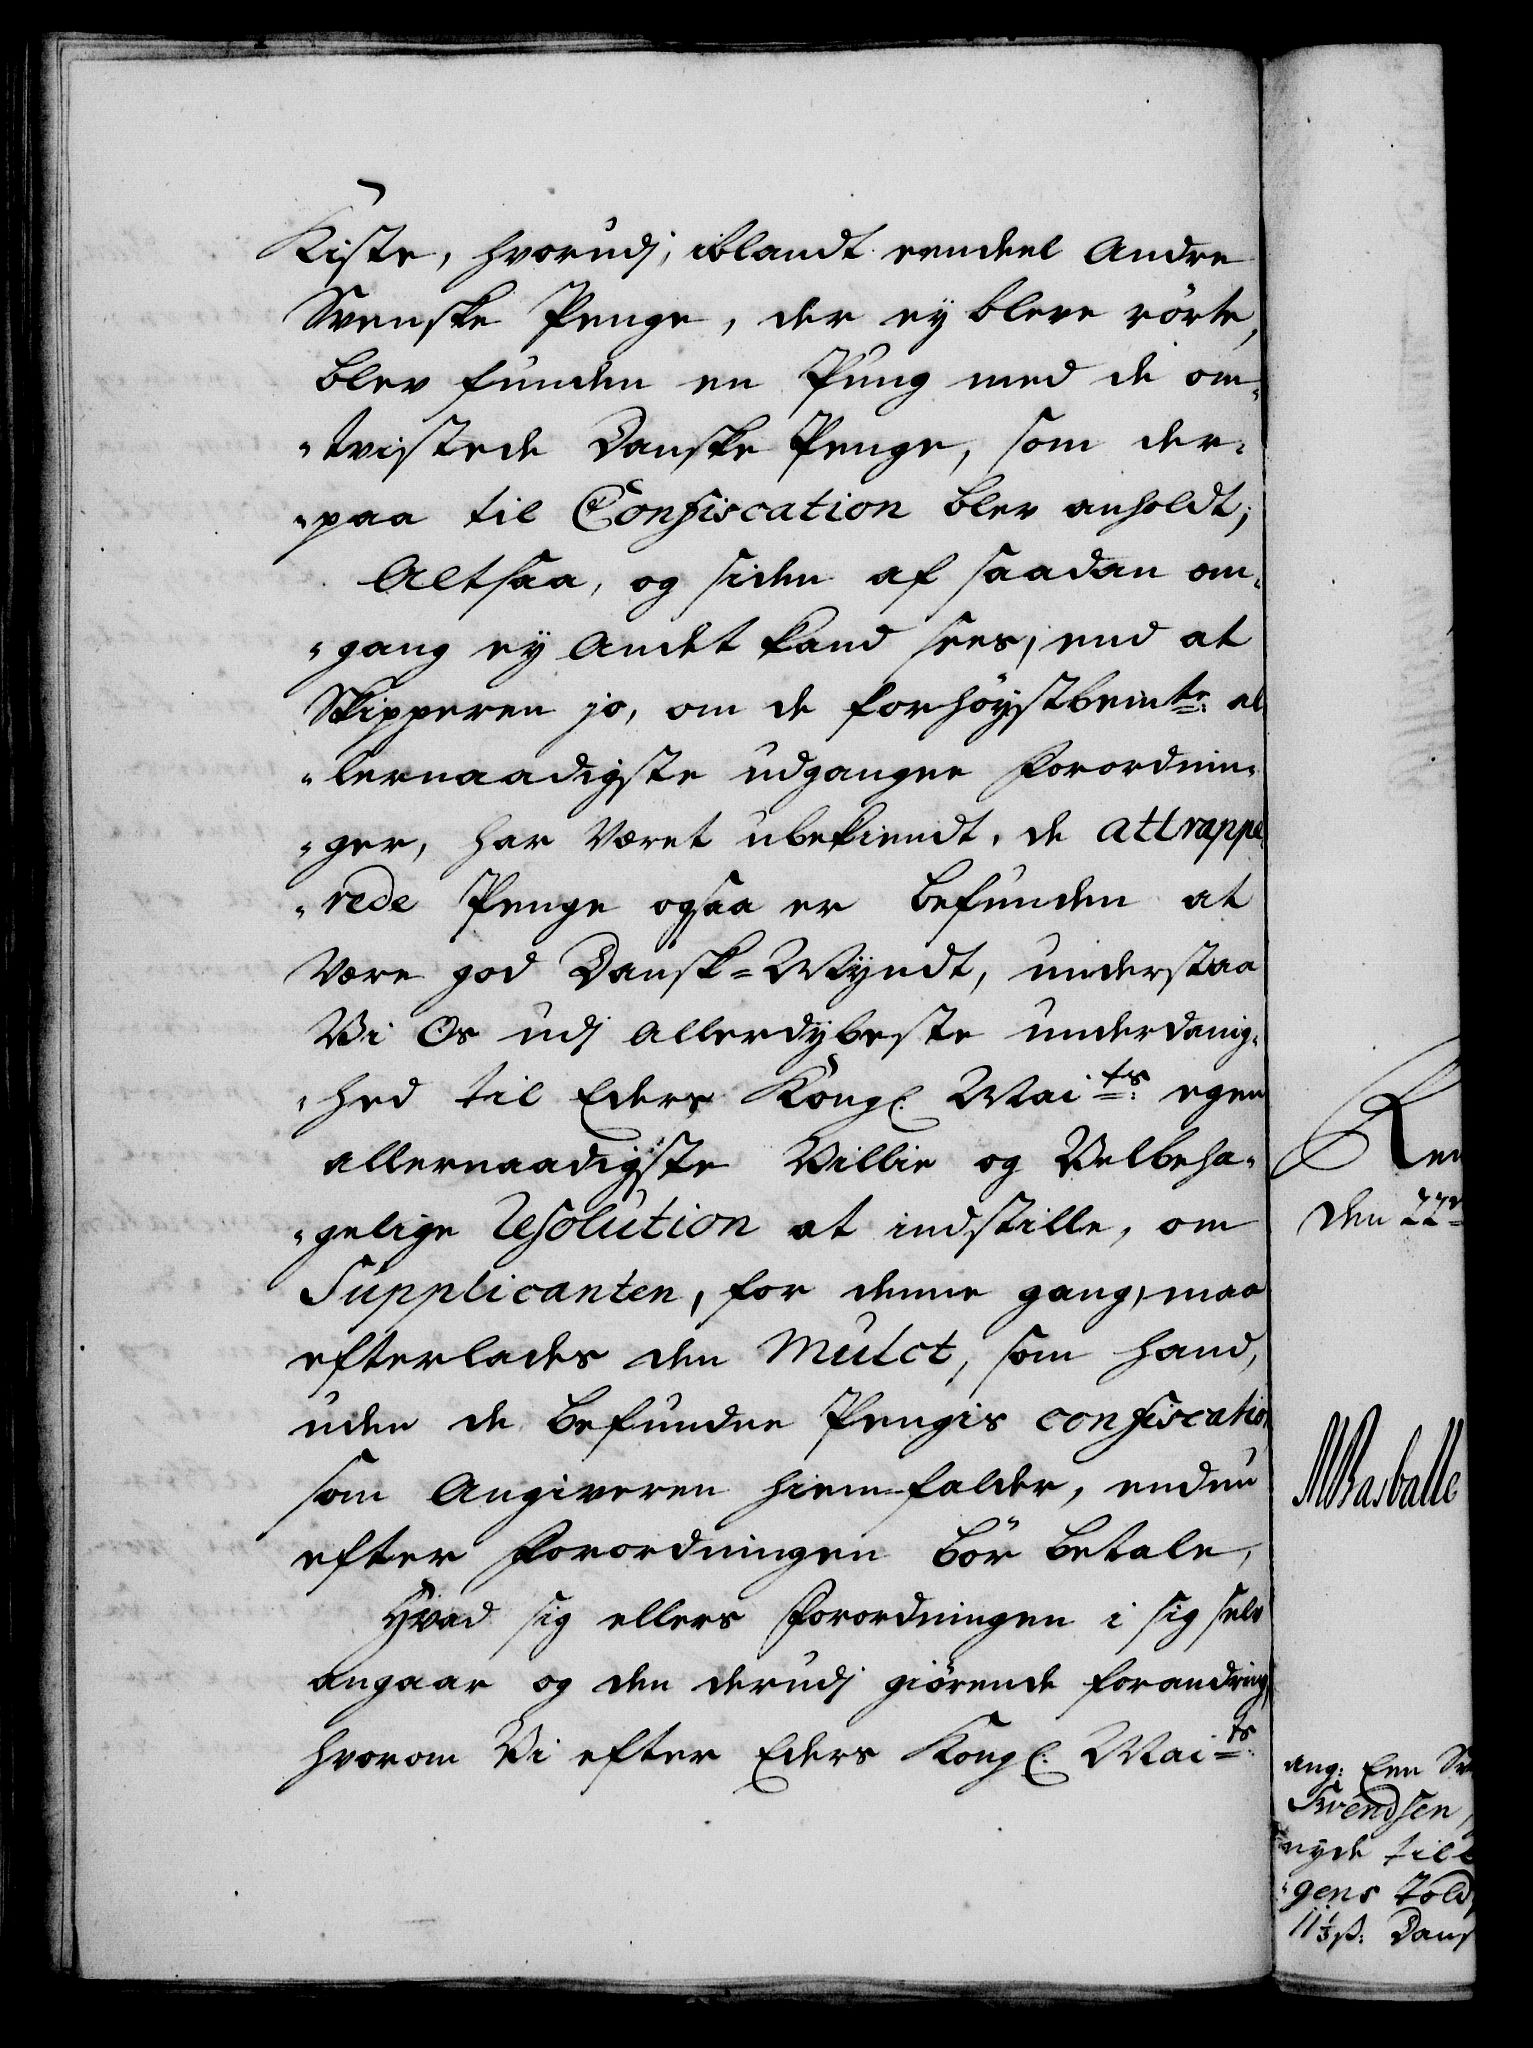 Kiste, hvorudj, iblandt eendeel Andre
Svenske Penge, der ey bleve rörte,
blev funden en Pung med de om-
"tvistede Danske Penge, som der-
"paa til Confiscation blev anholdt;
Altsaa, og siden af saadan om-
"gang ey Andet kand sees, end at
Skipperen jo, om de forhöystbemte: al
"lernaadigste udgangne Forordnin-
"ger, har Været ubekiendt, de attrappe-
"rede Penge ogsaa er befunden at
Være god Dansk-Myndt, understaa
Vi Os udj Allerdybeste underdanig-
"hed til Eders Kongl. Maits: egen
allernaadigste Villie og Velbeha-
"gelige Resolution at indstille, om
Supplicanten, for denne gang, maa
efterlades den Mulct, som hand,
uden de befundne Pengis confiscation
som Angiveren hiemfalder, endnu
efter Forordningen bör betale,
Hvad sig ellers Forordningen i sig selv
angaar og den derudj giörende forandring,
hvorom Vi efter Eders Kongl. Maits:
Ren
den 22n
ang: Een Sv
Svendsen,
nyde till
"gens Told,
11⅓ ß: Dans